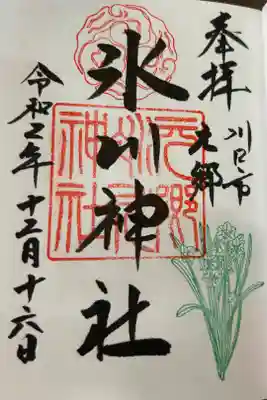 奉拝
川口市
元郷
氷川神社
令和二年十二月十六日
元郷
氷川
神社